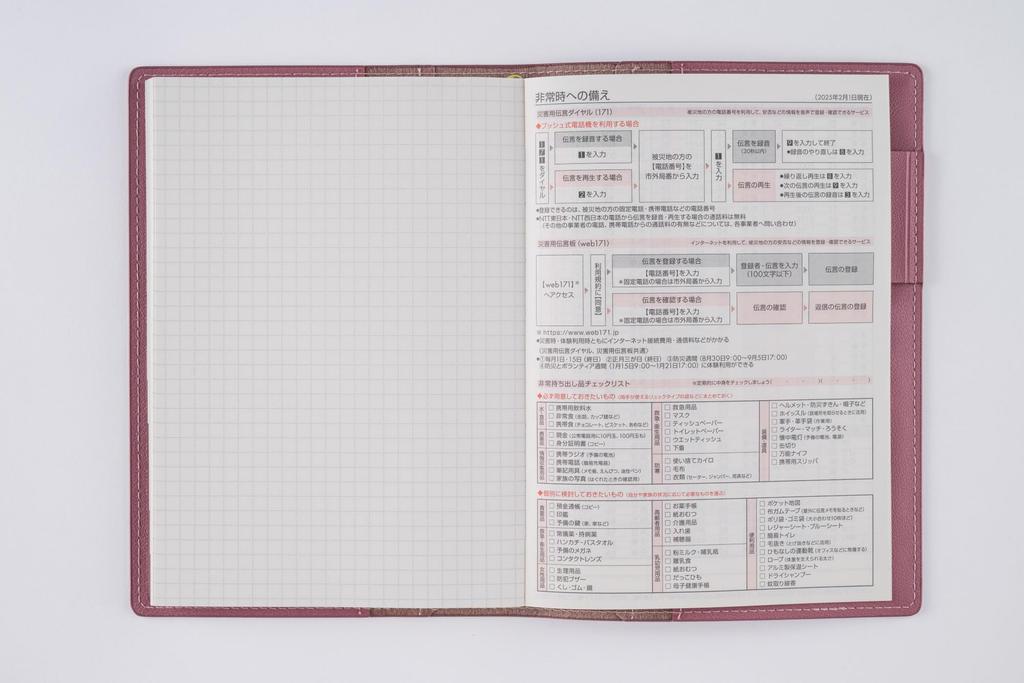 非常時への備え
(2025年2月1日現在)
災害用伝言ダイヤル(171)
被災地の方の電話番号を利用して、安否などの情報を音声で登録・確認できるサービス
◆プッシュ式電話機を利用する場合
171をダイヤル
伝言を録音する場合
1を入力
伝言を再生する場合
2を入力
被災地の方の
【電話番号】を
市外局番から入力
1を入力
伝言を録音
(30秒以内)
9を入力して終了
●録音のやり直しは8を入力
伝言の再生
●繰り返し再生は8を入力
●次の伝言の再生は9を入力
●再生後の伝言の録音は3を入力
●登録できるのは、被災地の方の固定電話・携帯電話などの電話番号
●NTT東日本・NTT西日本の電話から伝言を録音・再生する場合の通話料は無料
(その他の事業者の電話、携帯電話からの通話料の有無などについては、各事業者へ問い合わせ)
災害用伝言板(web171)
インターネットを利用して、被災地の方の安否などの情報を登録・確認できるサービス
【web171】※
へアクセス
利用規約に【同意】
伝言を登録する場合
【電話番号】を入力
●固定電話の場合は市外局番から入力
登録者・伝言を入力
(100文字以下)
伝言の登録
伝言を確認する場合
【電話番号】を入力
●固定電話の場合は市外局番から入力
伝言の確認
返信の伝言の登録
※ https://www.web171.jp
●災害時・体験利用時ともにインターネット接続費用・通信料などがかかる
〈災害用伝言ダイヤル、災害用伝言板共通〉
●①毎月1日・15日(終日) ②正月三が日(終日) ③防災週間(8月30日9:00〜9月5日17:00)
④防災とボランティア週間(1月15日9:00〜1月21日17:00)に体験利用ができる
非常持ち出し品チェックリスト
※定期的に中身をチェックしましょう( ・ ・ )( ・ ・ )
◆必ず用意しておきたいもの(両手が使えるリュックタイプの袋などにまとめておく)
水・食品
□ 携帯用飲料水
□ 非常食(缶詰、カップ麺など)
□ 携帯食(チョコレート、ビスケット、あめなど)
貴重品
□ 現金(公衆電話用に10円玉、100円玉も)
□ 身分証明書(コピー)
情報収集用品
□ 携帯ラジオ(予備の電池)
□ 携帯電話(簡易充電器)
□ 筆記用具(メモ帳、えんぴつ、油性ペン)
□ 家族の写真(はぐれたときの確認用)
救急・衛生用品
□ 救急用品
□ マスク
□ ティッシュペーパー
□ トイレットペーパー
□ ウエットティッシュ
□ 下着
防寒
□ 使い捨てカイロ
□ 毛布
□ 衣類(セーター、ジャンパー、雨具など)
装備・道具
□ ヘルメット・防災ずきん・帽子など
□ ホイッスル(居場所を知らせるときに活用)
□ 軍手・革手袋(作業用)
□ ライター・マッチ・ろうそく
□ 懐中電灯(予備の電池、電源)
□ 缶切り
□ 万能ナイフ
□ 携帯用スリッパ
◆個別に検討しておきたいもの(自分や家族の状況に応じて必要なものを選ぶ)
貴重品
□ 預金通帳(コピー)
□ 印鑑
□ 予備の鍵(家、車など)
救急・衛生用品
□ 常備薬・持病薬
□ ハンカチ・バスタオル
□ 予備のメガネ
□ コンタクトレンズ
女性用品
□ 生理用品
□ 防犯ブザー
□ くし・ゴム・鏡
高齢者用品
□ お薬手帳
□ 紙おむつ
□ 介護用品
□ 入れ歯
□ 補聴器
乳幼児用品
□ 粉ミルク・哺乳瓶
□ 離乳食
□ 紙おむつ
□ だっこひも
□ 母子健康手帳
便利用品
□ ポケット地図
□ 布ガムテープ(屋外に伝言メモを貼るときなど)
□ ポリ袋・ゴミ袋(大小合わせ10枚ほど)
□ レジャーシート・ブルーシート
□ 簡易トイレ
□ 毛抜き(とげ抜きなどに活用)
□ ひもなしの運動靴(オフィスなどに常備する)
□ ロープ(体重を支えられる太さ)
□ アルミ製保温シート
□ ドライシャンプー
□ 蚊取り線香